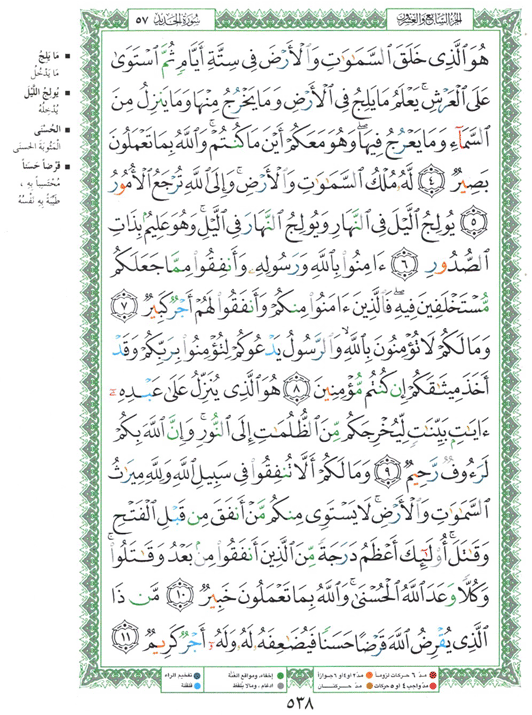 الجزء السابع والعشرون
سورة الحديد ٥٧
هُوَ الَّذِى خَلَقَ السَّمَٰوَٰتِ وَالْأَرْضَ فِى سِتَّةِ أَيَّامٍ ثُمَّ اسْتَوَىٰ
عَلَى الْعَرْشِ ۚ يَعْلَمُ مَا يَلِجُ فِى الْأَرْضِ وَمَا يَخْرُجُ مِنْهَا وَمَا يَنزِلُ مِنَ
السَّمَآءِ وَمَا يَعْرُجُ فِيهَا ۖ وَهُوَ مَعَكُمْ أَيْنَ مَا كُنتُمْ ۚ وَاللَّهُ بِمَا تَعْمَلُونَ
بَصِيرٌ ٤ لَّهُ مُلْكُ السَّمَٰوَٰتِ وَالْأَرْضِ ۚ وَإِلَى اللَّهِ تُرْجَعُ الْأُمُورُ
٥ يُولِجُ الَّيْلَ فِى النَّهَارِ وَيُولِجُ النَّهَارَ فِى الَّيْلِ ۚ وَهُوَ عَلِيمٌ بِذَاتِ
الصُّدُورِ ٦ ءَامِنُوا بِاللَّهِ وَرَسُولِهِ وَأَنفِقُوا مِمَّا جَعَلَكُم
مُّسْتَخْلَفِينَ فِيهِ ۖ فَالَّذِينَ ءَامَنُوا مِنكُمْ وَأَنفَقُوا لَهُمْ أَجْرٌ كَبِيرٌ ٧
وَمَا لَكُمْ لَا تُؤْمِنُونَ بِاللَّهِ ۙ وَالرَّسُولُ يَدْعُوكُمْ لِتُؤْمِنُوا بِرَبِّكُمْ وَقَدْ
أَخَذَ مِيثَٰقَكُمْ إِن كُنتُم مُّؤْمِنِينَ ٨ هُوَ الَّذِى يُنَزِّلُ عَلَىٰ عَبْدِهِ
ءَايَٰتٍ بَيِّنَٰتٍ لِّيُخْرِجَكُم مِّنَ الظُّلُمَٰتِ إِلَى النُّورِ ۚ وَإِنَّ اللَّهَ بِكُمْ
لَرَءُوفٌ رَّحِيمٌ ٩ وَمَا لَكُمْ أَلَّا تُنفِقُوا فِى سَبِيلِ اللَّهِ وَلِلَّهِ مِيرَٰثُ
السَّمَٰوَٰتِ وَالْأَرْضِ ۚ لَا يَسْتَوِى مِنكُم مَّنْ أَنفَقَ مِن قَبْلِ الْفَتْحِ
وَقَٰتَلَ ۚ أُولَٰٓئِكَ أَعْظَمُ دَرَجَةً مِّنَ الَّذِينَ أَنفَقُوا مِنۢ بَعْدُ وَقَٰتَلُوا ۚ
وَكُلًّا وَعَدَ اللَّهُ الْحُسْنَىٰ ۚ وَاللَّهُ بِمَا تَعْمَلُونَ خَبِيرٌ ١٠ مَّن ذَا
الَّذِى يُقْرِضُ اللَّهَ قَرْضًا حَسَنًا فَيُضَٰعِفَهُ لَهُ وَلَهُ أَجْرٌ كَرِيمٌ ١١
مَا يَلِجُ
مَا يَدْخُلُ
يُولِجُ اللَّيْلَ
يُدْخِلُهُ
الْحُسْنَى
الْمَثُوبَةَ الحسنى
قَرْضاً حَسَناً
مُحْتَسِباً بِهِ ،
طَيِّبَةً بِهِ نَفْسُهُ
مدّ ٦ حركات لزوماً مدّ ٢ أو ٤ أو ٦ جوازاً إخفاء، ومواقع الغُنَّة تفخيم الراء
مدّ واجب ٤ أو ٥ حركات مدّ حركتان إدغام، وما لا يُلفظ قلقلة
٥٣٨